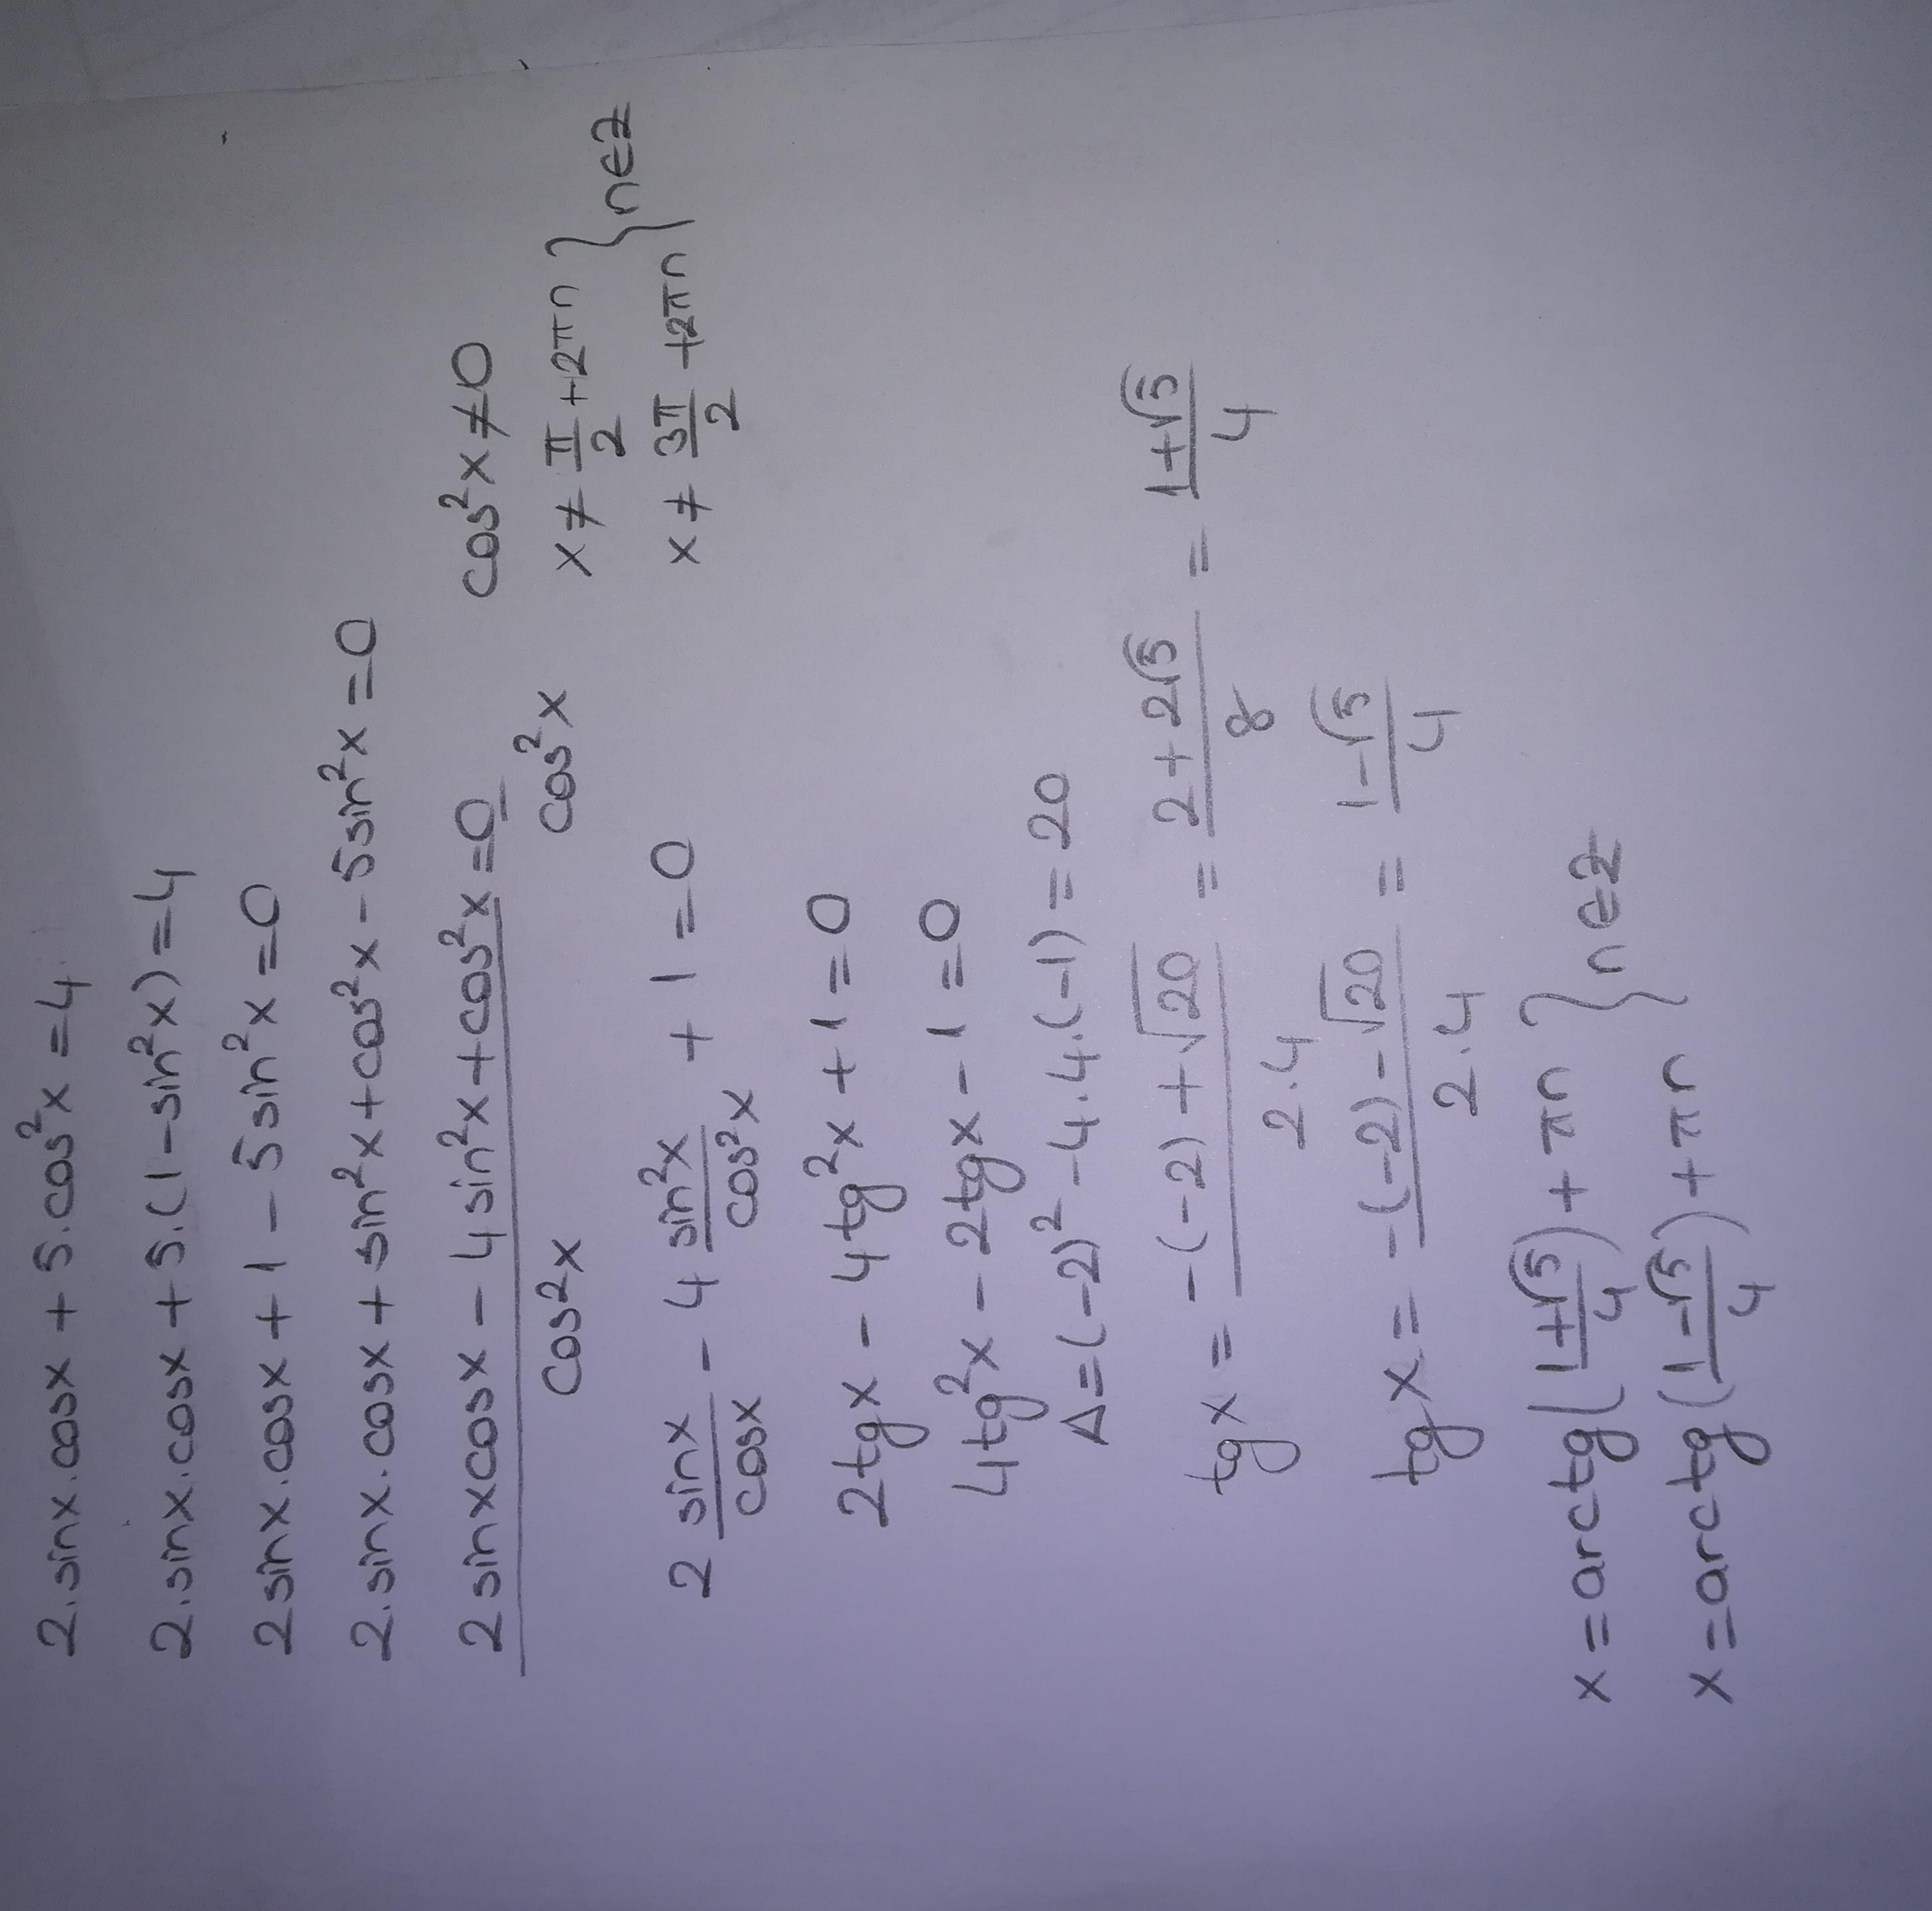 2.sinx.cosx + 5.cos²x = 4
2.sinx.cosx + 5.(1-sin²x) = 4
2sinx.cosx + 1 - 5sin²x = 0
2.sinx.cosx + sin²x + cos²x - 5sin²x = 0
(2sinxcosx - 4sin²x + cos²x)/cos²x = 0/cos²x  cos²x ≠ 0
x ≠ π/2 + 2πn } n∈Z
x ≠ 3π/2 + 2πn
2 sinx/cosx - 4 sin²x/cos²x + 1 = 0
2tgx - 4tg²x + 1 = 0
4tg²x - 2tgx - 1 = 0
Δ = (-2)² - 4.4.(-1) = 20
tgx = (-(-2) + √20)/(2.4) = (2 + 2√5)/8 = (1+√5)/4
tgx = (-(-2) - √20)/(2.4) = (1-√5)/4
x = arctg((1+√5)/4) + πn } n∈Z
x = arctg((1-√5)/4) + πn